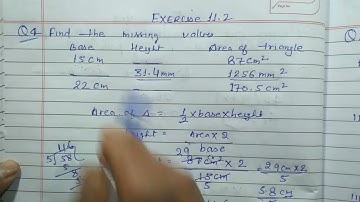 Exercise 11.2
Q4 Find the missing values
Base Height Area of triangle
15 cm __ 87 cm²
__ 31.4 mm 1256 mm²
22 cm __ 170.5 cm²
Area of Δ = 1/2 × base × height
Height = Area × 2
base
= 87 cm² × 2 = 29 cm × 2
15 cm 5
29
5.8 cm
116
5 58
5
8
5